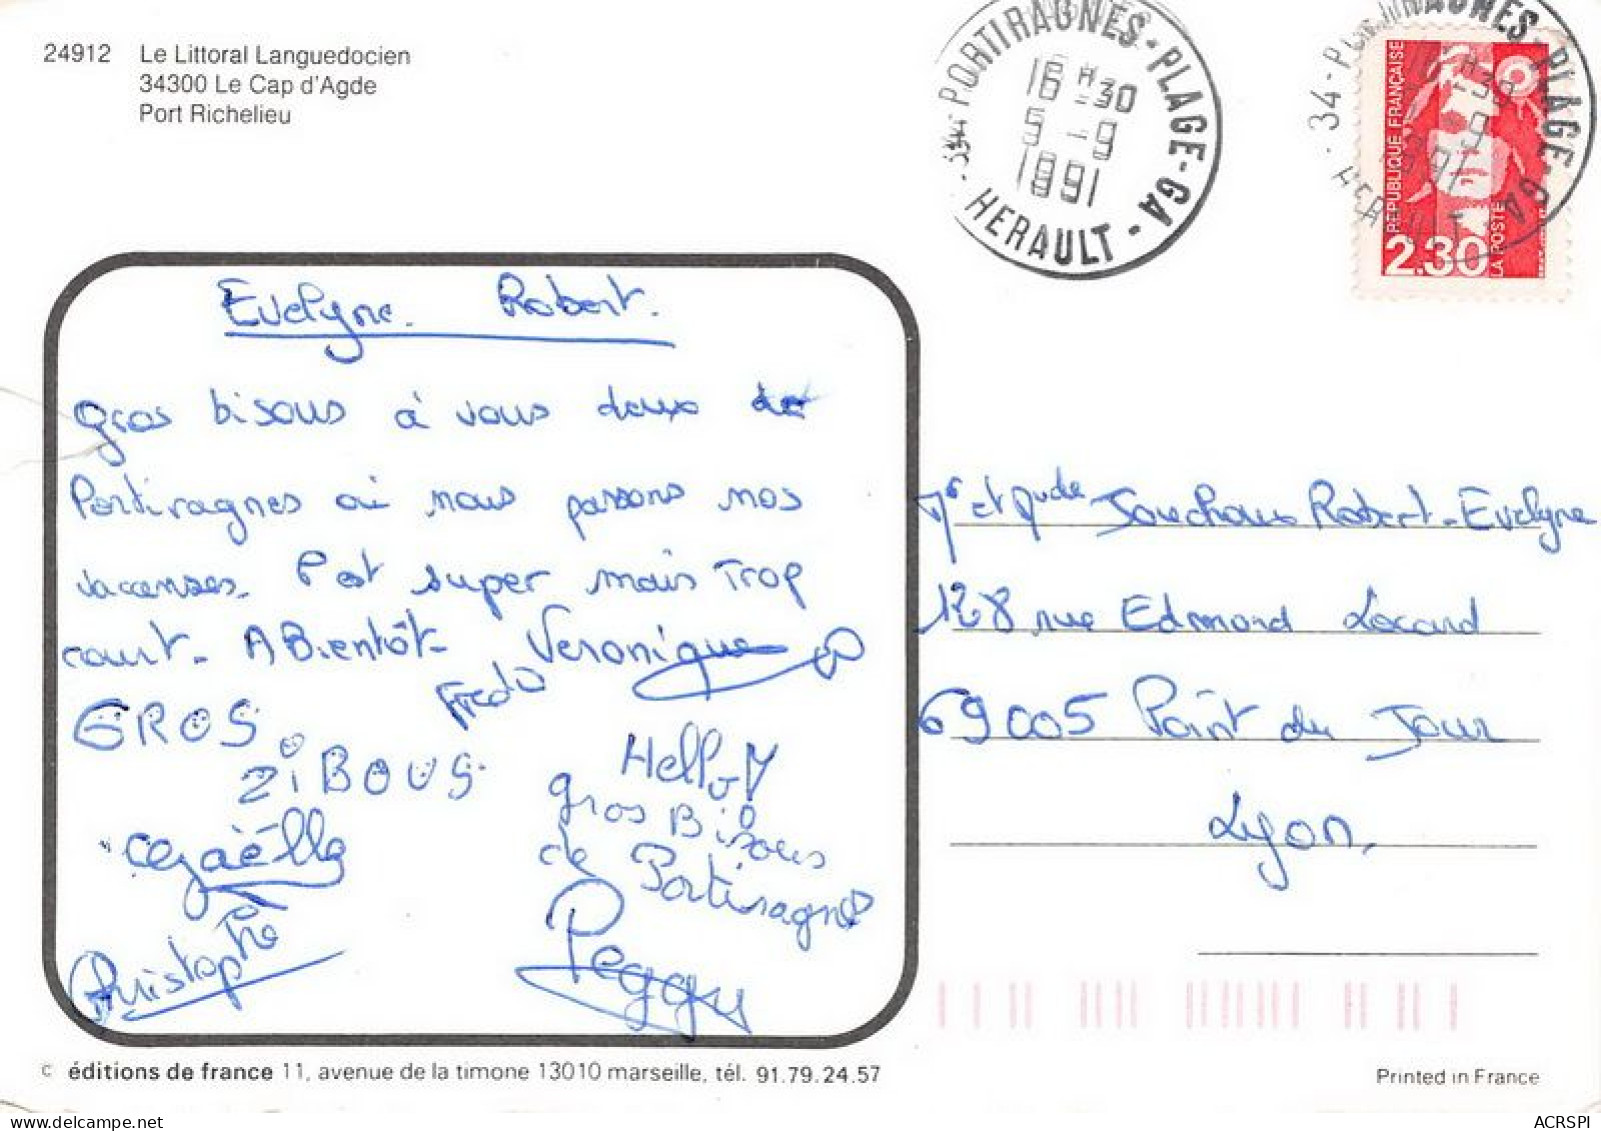 24912 Le Littoral Languedocien
34300 Le Cap d'Agde
Port Richelieu
34 - PORTIRAGNES - PLAGE - GA -
16 H 30
5 - 9
1991
HERAULT -
34 - PORTIRAGNES - PLAGE - GA
HERAULT
RÉPUBLIQUE FRANÇAISE
2.30
LA POSTE
Evelyne. Robert.
Gros bisous à vous deux de
Portiragnes où nous passons nos
vacanses. C'est super mais Trop
court. A Bientôt - Veronique
Fredo
GROS
ZiBOUS
Gaëlle
Christophe
Hello
gros Bisous
de Portiragnes
Peggy
Jouchoux Robert - Evelyne
128 rue Edmond Locard
69005 Point du Jour
Lyon.
c éditions de france 11, avenue de la timone 13010 marseille, tél. 91.79.24.57
Printed in France
ACRSPI